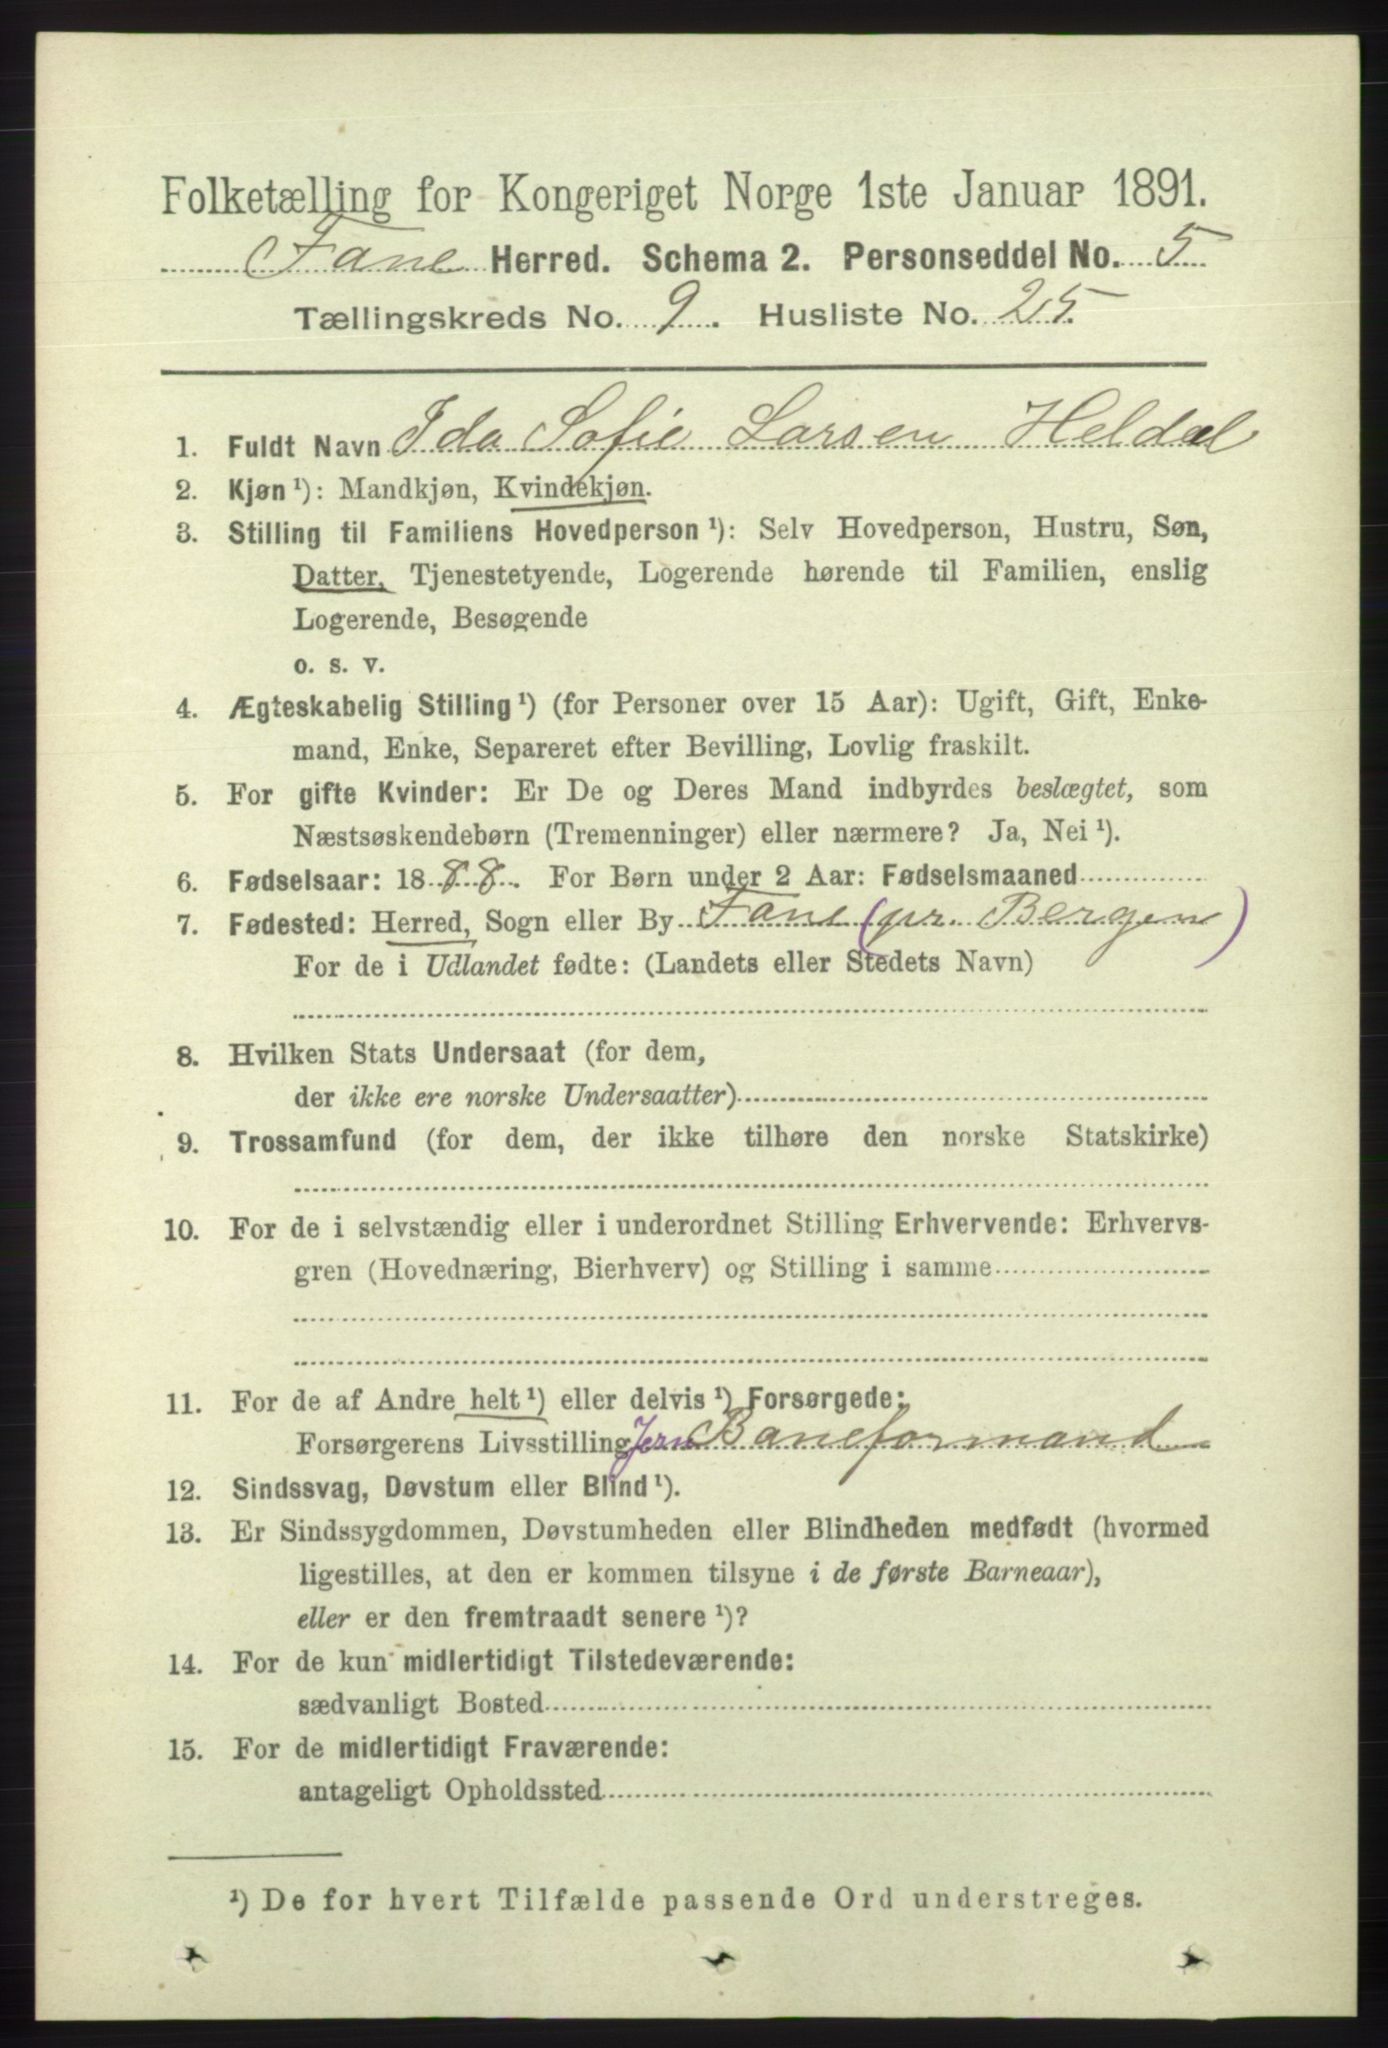 Folketælling for Kongeriget Norge 1ste Januar 1891.
Fane Herred. Schema 2. Personseddel No. 5
Tællingskreds No. 9. Husliste No. 25.
1. Fuldt Navn Ida Sofie Larsen Heldal
2. Kjøn ¹): Mandkjøn, Kvindekjøn.
3. Stilling til Familiens Hovedperson ¹): Selv Hovedperson, Hustru, Søn,
Datter, Tjenestetyende, Logerende hørende til Familien, enslig
Logerende, Besøgende
o. s. v.
4. Ægteskabelig Stilling ¹) (for Personer over 15 Aar): Ugift, Gift, Enke-
mand, Enke, Separeret efter Bevilling, Lovlig fraskilt.
5. For gifte Kvinder: Er De og Deres Mand indbyrdes beslægtet, som
Næstsøskendebørn (Tremenninger) eller nærmere? Ja, Nei ¹).
6. Fødselsaar: 1888. For Børn under 2 Aar: Fødselsmaaned
7. Fødested: Herred, Sogn eller By Fane (pr. Bergen)
For de i Udlandet fødte: (Landets eller Stedets Navn)
8. Hvilken Stats Undersaat (for dem,
der ikke ere norske Undersaatter)
9. Trossamfund (for dem, der ikke tilhøre den norske Statskirke)
10. For de i selvstændig eller i underordnet Stilling Erhvervende: Erhvervs-
gren (Hovednæring, Bierhverv) og Stilling i samme
11. For de af Andre helt ¹) eller delvis ¹) Forsørgede:
Forsørgerens Livsstilling Jern Baneformand
12. Sindssvag, Døvstum eller Blind ¹).
13. Er Sindssygdommen, Døvstumheden eller Blindheden medfødt (hvormed
ligestilles, at den er kommen tilsyne i de første Barneaar),
eller er den fremtraadt senere ¹)?
14. For de kun midlertidigt Tilstedeværende:
sædvanligt Bosted
15. For de midlertidigt Fraværende:
antageligt Opholdssted
¹) De for hvert Tilfælde passende Ord understreges.